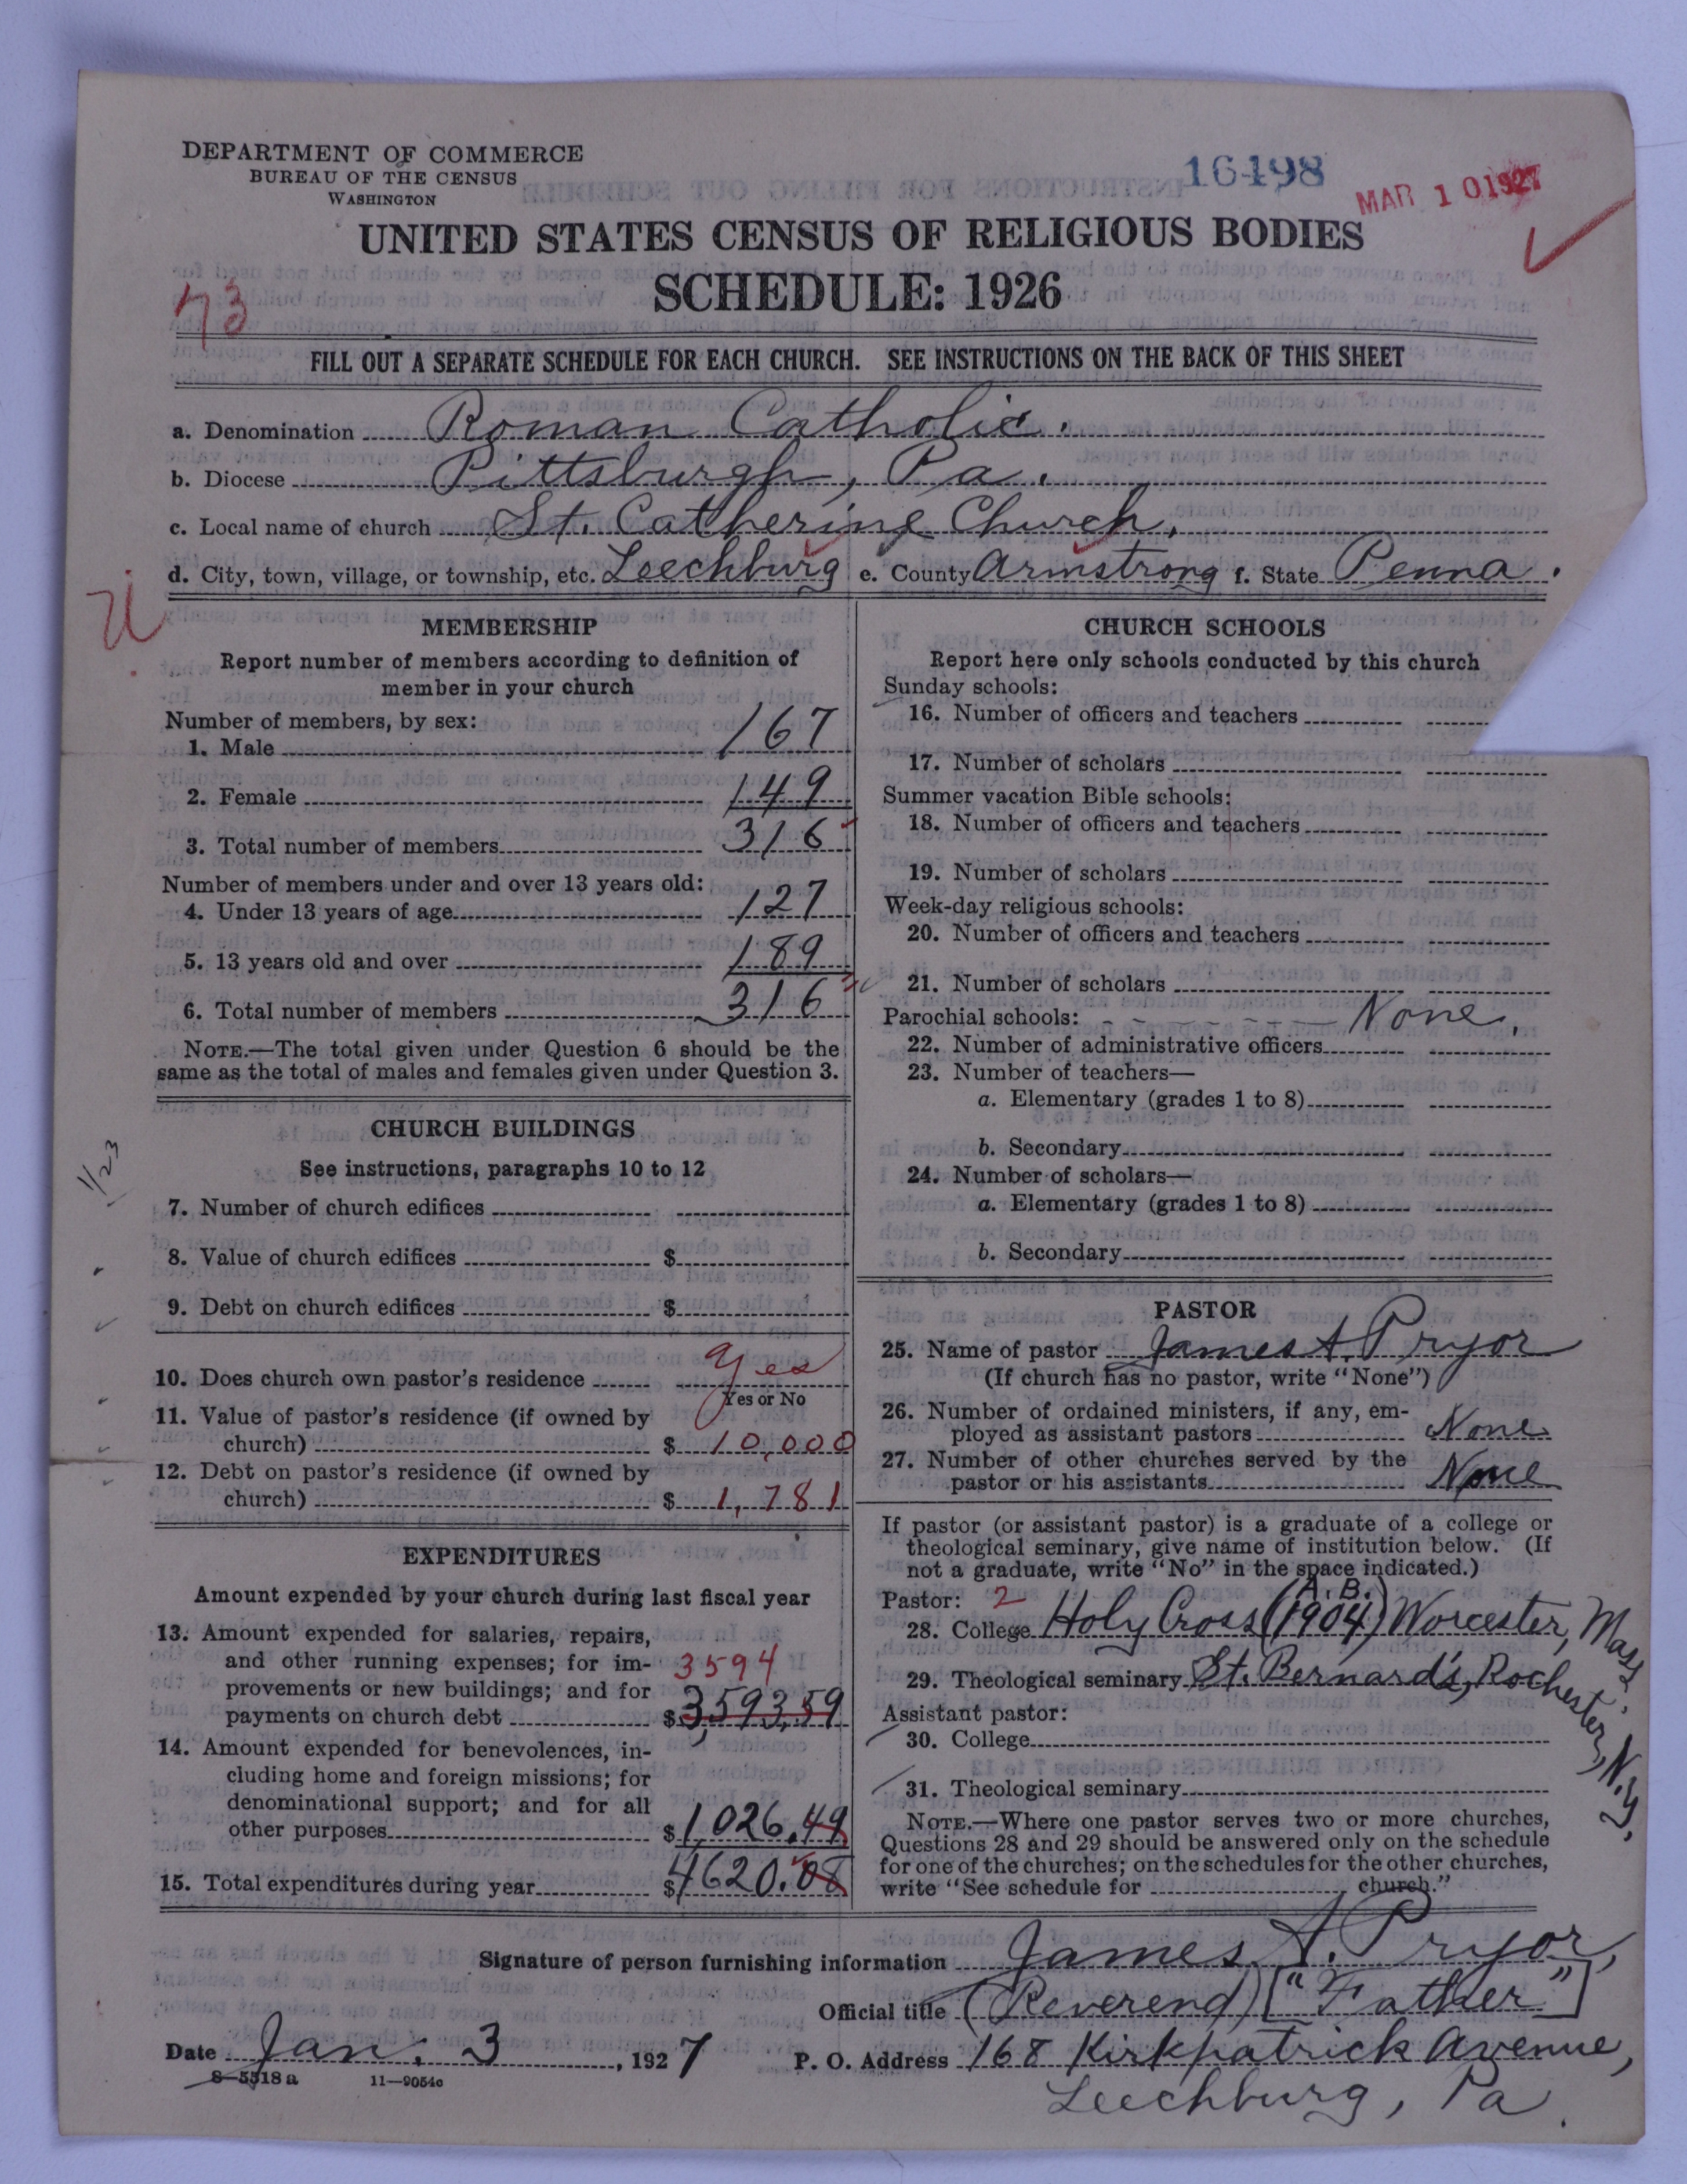 DEPARTMENT OF COMMERCE
BUREAU OF THE CENSUS
WASHINGTON
16498
MAR 10 1927
UNITED STATES CENSUS OF RELIGIOUS BODIES
SCHEDULE: 1926
73
FILL OUT A SEPARATE SCHEDULE FOR EACH CHURCH. SEE INSTRUCTIONS ON THE BACK OF THIS SHEET
a. Denomination Roman Catholic.
b. Diocese Pittsburgh, Pa.
c. Local name of church St. Catherine Church.
d. City, town, village, or township, etc. Leechburg e. County Armstrong f. State Penna.
MEMBERSHIP
Report number of members according to definition of
member in your church
Number of members, by sex:
1. Male 167
2. Female 149
3. Total number of members 316
Number of members under and over 13 years old:
4. Under 13 years of age 127
5. 13 years old and over 189
6. Total number of members 316
NOTE.—The total given under Question 6 should be the
same as the total of males and females given under Question 3.
CHURCH BUILDINGS
1/23
See instructions, paragraphs 10 to 12
7. Number of church edifices
8. Value of church edifices $
9. Debt on church edifices $
10. Does church own pastor's residence Yes
Yes or No
11. Value of pastor's residence (if owned by
church) $ 10,000
12. Debt on pastor's residence (if owned by
church) $ 1,781
EXPENDITURES
Amount expended by your church during last fiscal year
13. Amount expended for salaries, repairs,
and other running expenses; for im- 3594
provements or new buildings; and for
payments on church debt $ 3,593.59
14. Amount expended for benevolences, in-
cluding home and foreign missions; for
denominational support; and for all
other purposes $ 1,026.49
15. Total expenditures during year $ 4620.08
CHURCH SCHOOLS
Report here only schools conducted by this church
Sunday schools:
16. Number of officers and teachers
17. Number of scholars
Summer vacation Bible schools:
18. Number of officers and teachers
19. Number of scholars
Week-day religious schools:
20. Number of officers and teachers
21. Number of scholars
Parochial schools: - - - - - - - None.
22. Number of administrative officers
23. Number of teachers—
a. Elementary (grades 1 to 8)
b. Secondary
24. Number of scholars—
a. Elementary (grades 1 to 8)
b. Secondary
PASTOR
25. Name of pastor James A. Pryor
(If church has no pastor, write "None")
26. Number of ordained ministers, if any, em-
ployed as assistant pastors None
27. Number of other churches served by the
pastor or his assistants None
If pastor (or assistant pastor) is a graduate of a college or
theological seminary, give name of institution below. (If
not a graduate, write "No" in the space indicated.)
Pastor: 2
28. College Holy Cross (A.B. 1904) Worcester, Mass.
29. Theological seminary St. Bernard's, Rochester, N.Y.
Assistant pastor:
30. College
31. Theological seminary
NOTE.—Where one pastor serves two or more churches,
Questions 28 and 29 should be answered only on the schedule
for one of the churches; on the schedules for the other churches,
write "See schedule for church."
Signature of person furnishing information James A. Pryor,
Official title (Reverend) ["Father"]
Date Jan. 3, 1927 P. O. Address 168 Kirkpatrick Avenue,
8—5518a 11—9054c
Leechburg, Pa.